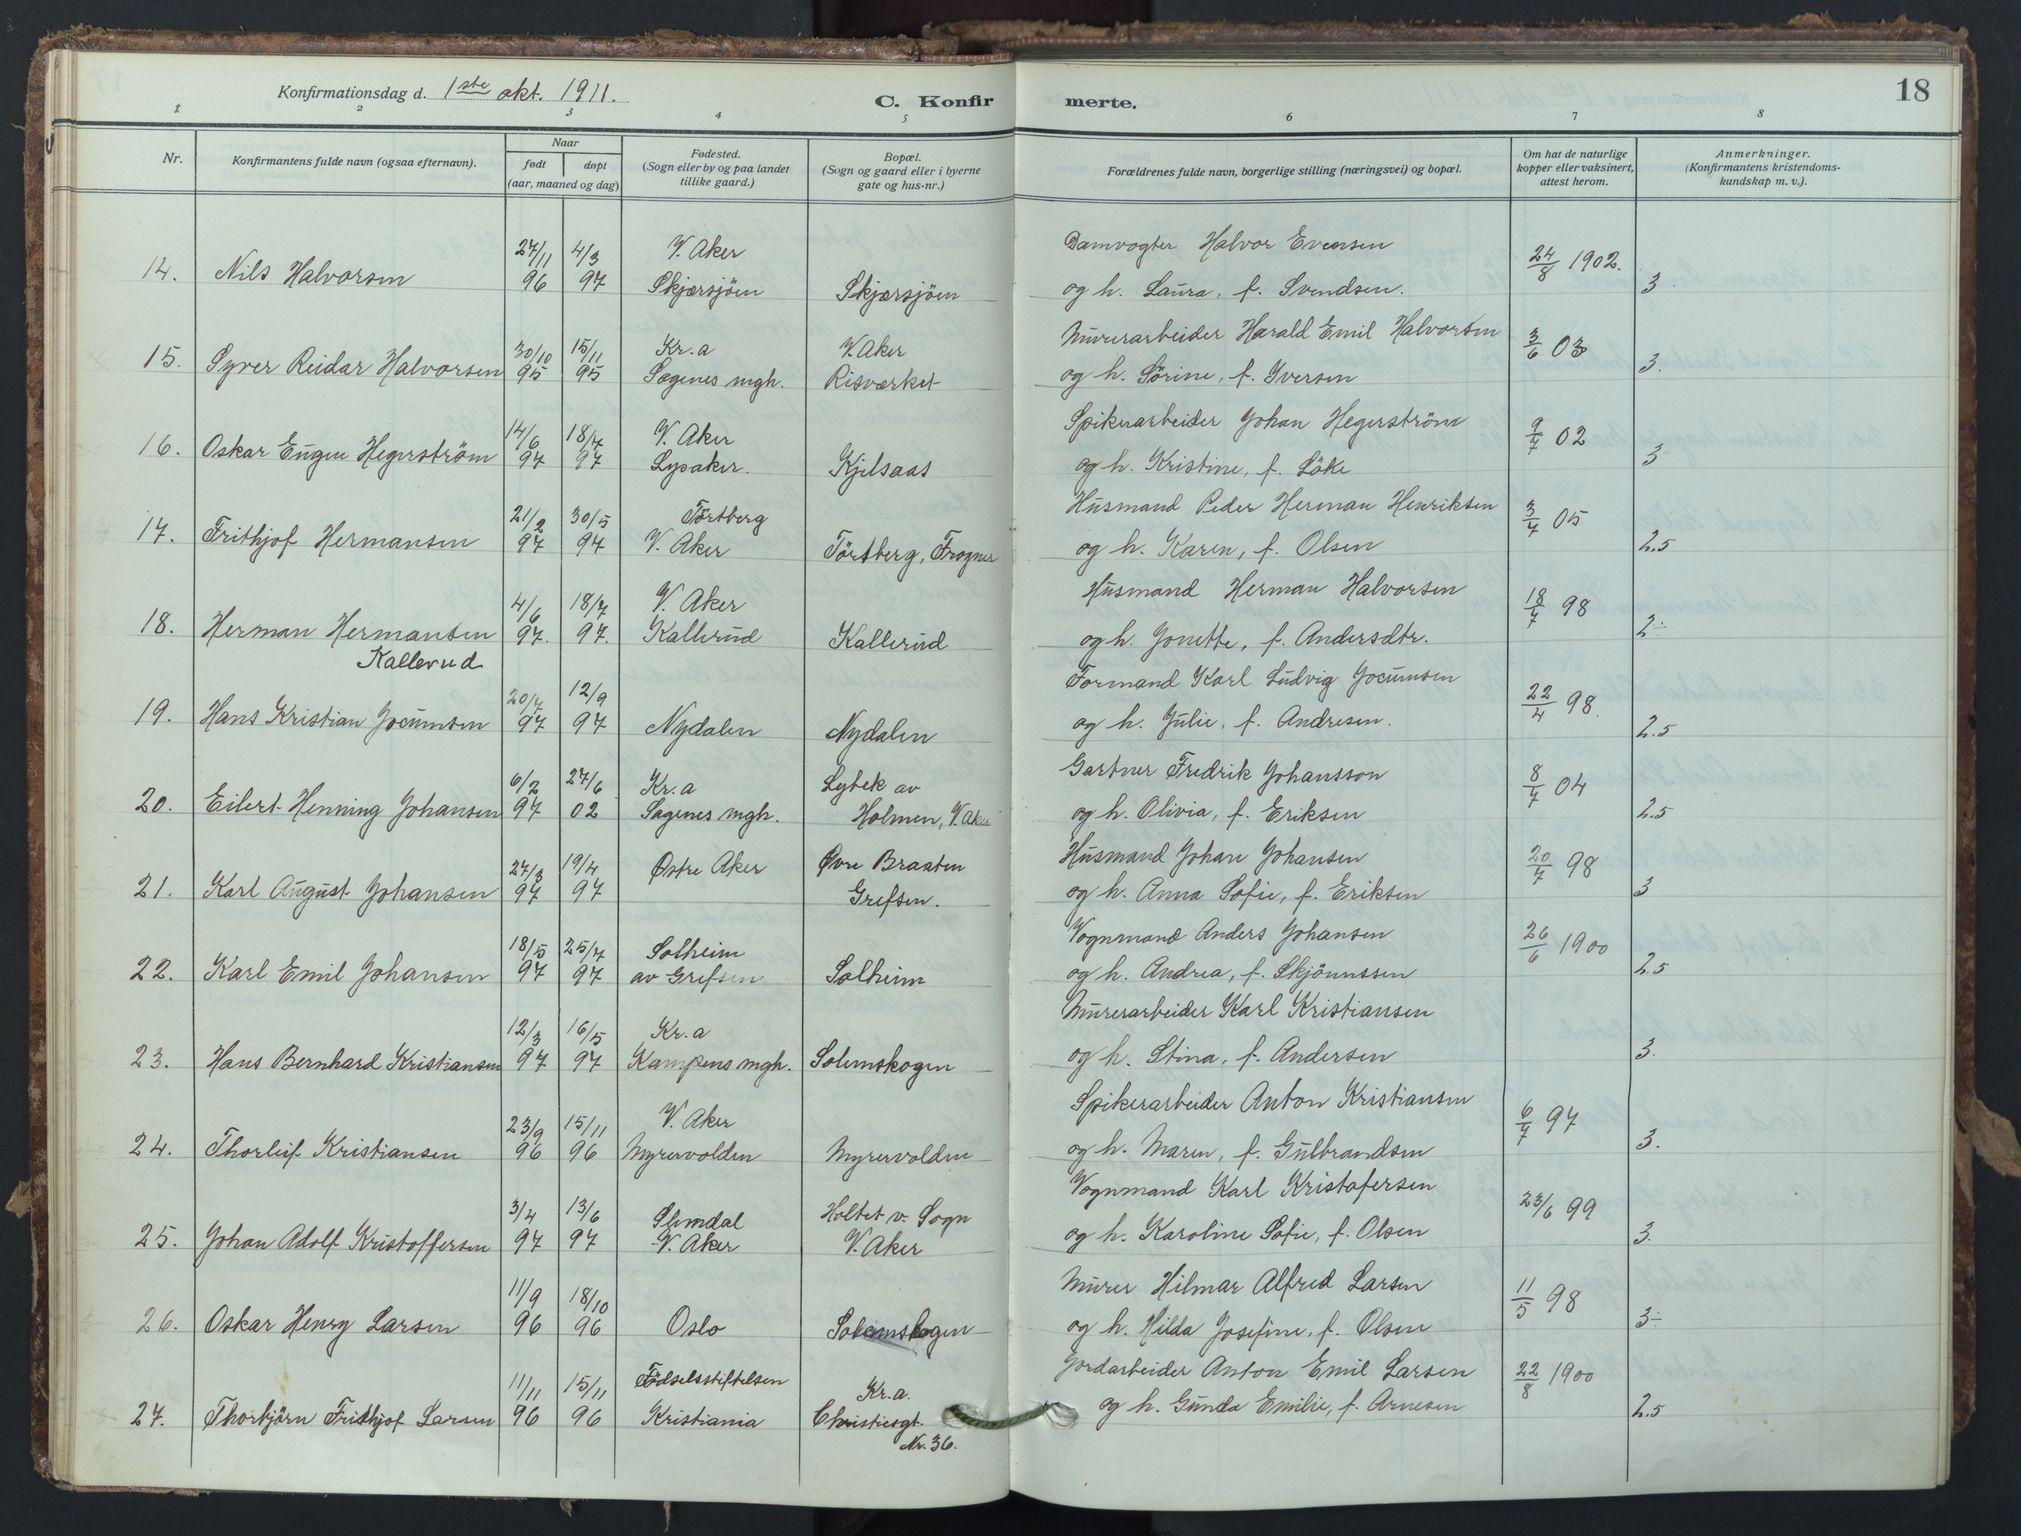 Konfirmationsdag d. 1ste okt. 1911.
C. Konfirmerte.
18
1 2 3 4 5 6 7 8
Nr.
Konfirmantens fulde navn (ogsaa efternavn).
Naar
født døpt
(aar, maaned og dag)
Fødested.
(Sogn eller by og paa landet
tillike gaard.)
Bopæl.
(Sogn og gaard eller i byerne
gate og hus-nr.)
Forældrenes fulde navn, borgerlige stilling (næringsvei) og bopæl.
Om hat de naturlige
kopper eller vaksinert,
attest herom.
Anmerkninger.
(Konfirmantens kristendoms-
kundskap m. v.).
27/11 4/3 V. Aker Damvogter Halvor Evensen 24/8 1902.
14. Nils Halvorsen 96 97 Skjærsjöen Skjærsjöen og h. Laura, f. Svendsen. 3
30/10 15/11 Kr.a V. Aker Murerarbeider Harald Emil Halvorsen 3/6 03
15. Syver Reidar Halvorsen 95 95 Sagenes mgh. Risværket og h. Sörine, f. Iversen 3.
14/6 18/7 V. Aker Spikerarbeider Johan Hegerström 9/7 02
16. Oskar Eugen Hegerström 97 97 Lysaker. Kjelsaas og h. Kristine, f. Löke 3
21/2 30/5 Törtberg Husmand Peder Herman Henriksen 3/7 05
17. Frithjof Hermansen 97 97 V. Aker Törtberg, Frogner og h. Karen, f. Olsen 2.5
4/6 18/7 V. Aker Husmand Herman Halvorsen 18/7 98
18. Herman Hermansen 97. 97. Kallerud Kallerud og h. Jonette, f. Andersdtr. 2÷
Kallerud
20/7 12/9 Formand Karl Ludvig Jocumsen 22/4 98.
19. Hans Kristian Jocumsen 97 97 Nydalen Nydalen og h. Julie, f. Andresen. 2.5
6/2 27/6 Kr.a Lybek av Gartner Fredrik Johansson 8/7 04
20. Eilert Henning Johansen 97 02 Sagenes mgh. Holmen, V. Aker og h. Olivia, f. Eriksen 2.5
27/3 19/4 Østre Aker Øvre Braaten Husmand Johan Johansen 20/7 98
21. Karl August Johansen 97 97 Grefsen. og h. Anna Sofie, f. Eriksen 3
18/5 25/7 Solheim Vognmand Anders Johansen 26/6 1900
22. Karl Emil Johansen 97 97 av Grefsen Solheim og h. Andrea, f. Skjönnssen 2.5
12/3 16/5 Kr.a Murerarbeider Karl Kristiansen
23. Hans Bernhard Kristiansen 97 97 Kampens mgh. Solemskogen og h. Stina, f. Andersen 3.
23/9 15/11 V. Aker Spikerarbeider Anton Kristiansen 6/7 97
24. Thorleif Kristiansen 96 96 Myrervolden Myrervolden og h. Maren, f. Gulbrandsen 3.
3/4 13/6 Slemdal Holtet v. Sogn Vognmand Karl Kristofersen 23/6 99
25. Johan Adolf Kristoffersen 97 97 V. Aker V. Aker og h. Karoline Sofie, f. Olsen 3.
11/9 18/10 Murer Hilmar Alfred Larsen 11/5 98
26. Oskar Henry Larsen 96 96 Oslo Solemskogen og h. Hilda Josefine, f. Olsen 3÷
11/11 15/11 Födselsstiftelsen Kr.a. Jordarbeider Anton Emil Larsen 22/8 1900
27. Thorbjörn Frithjof Larsen 96 96 Kristiania Christiesgt. og h. Gunda Emilie, f. Arnesen 2.5
Nr. 36.